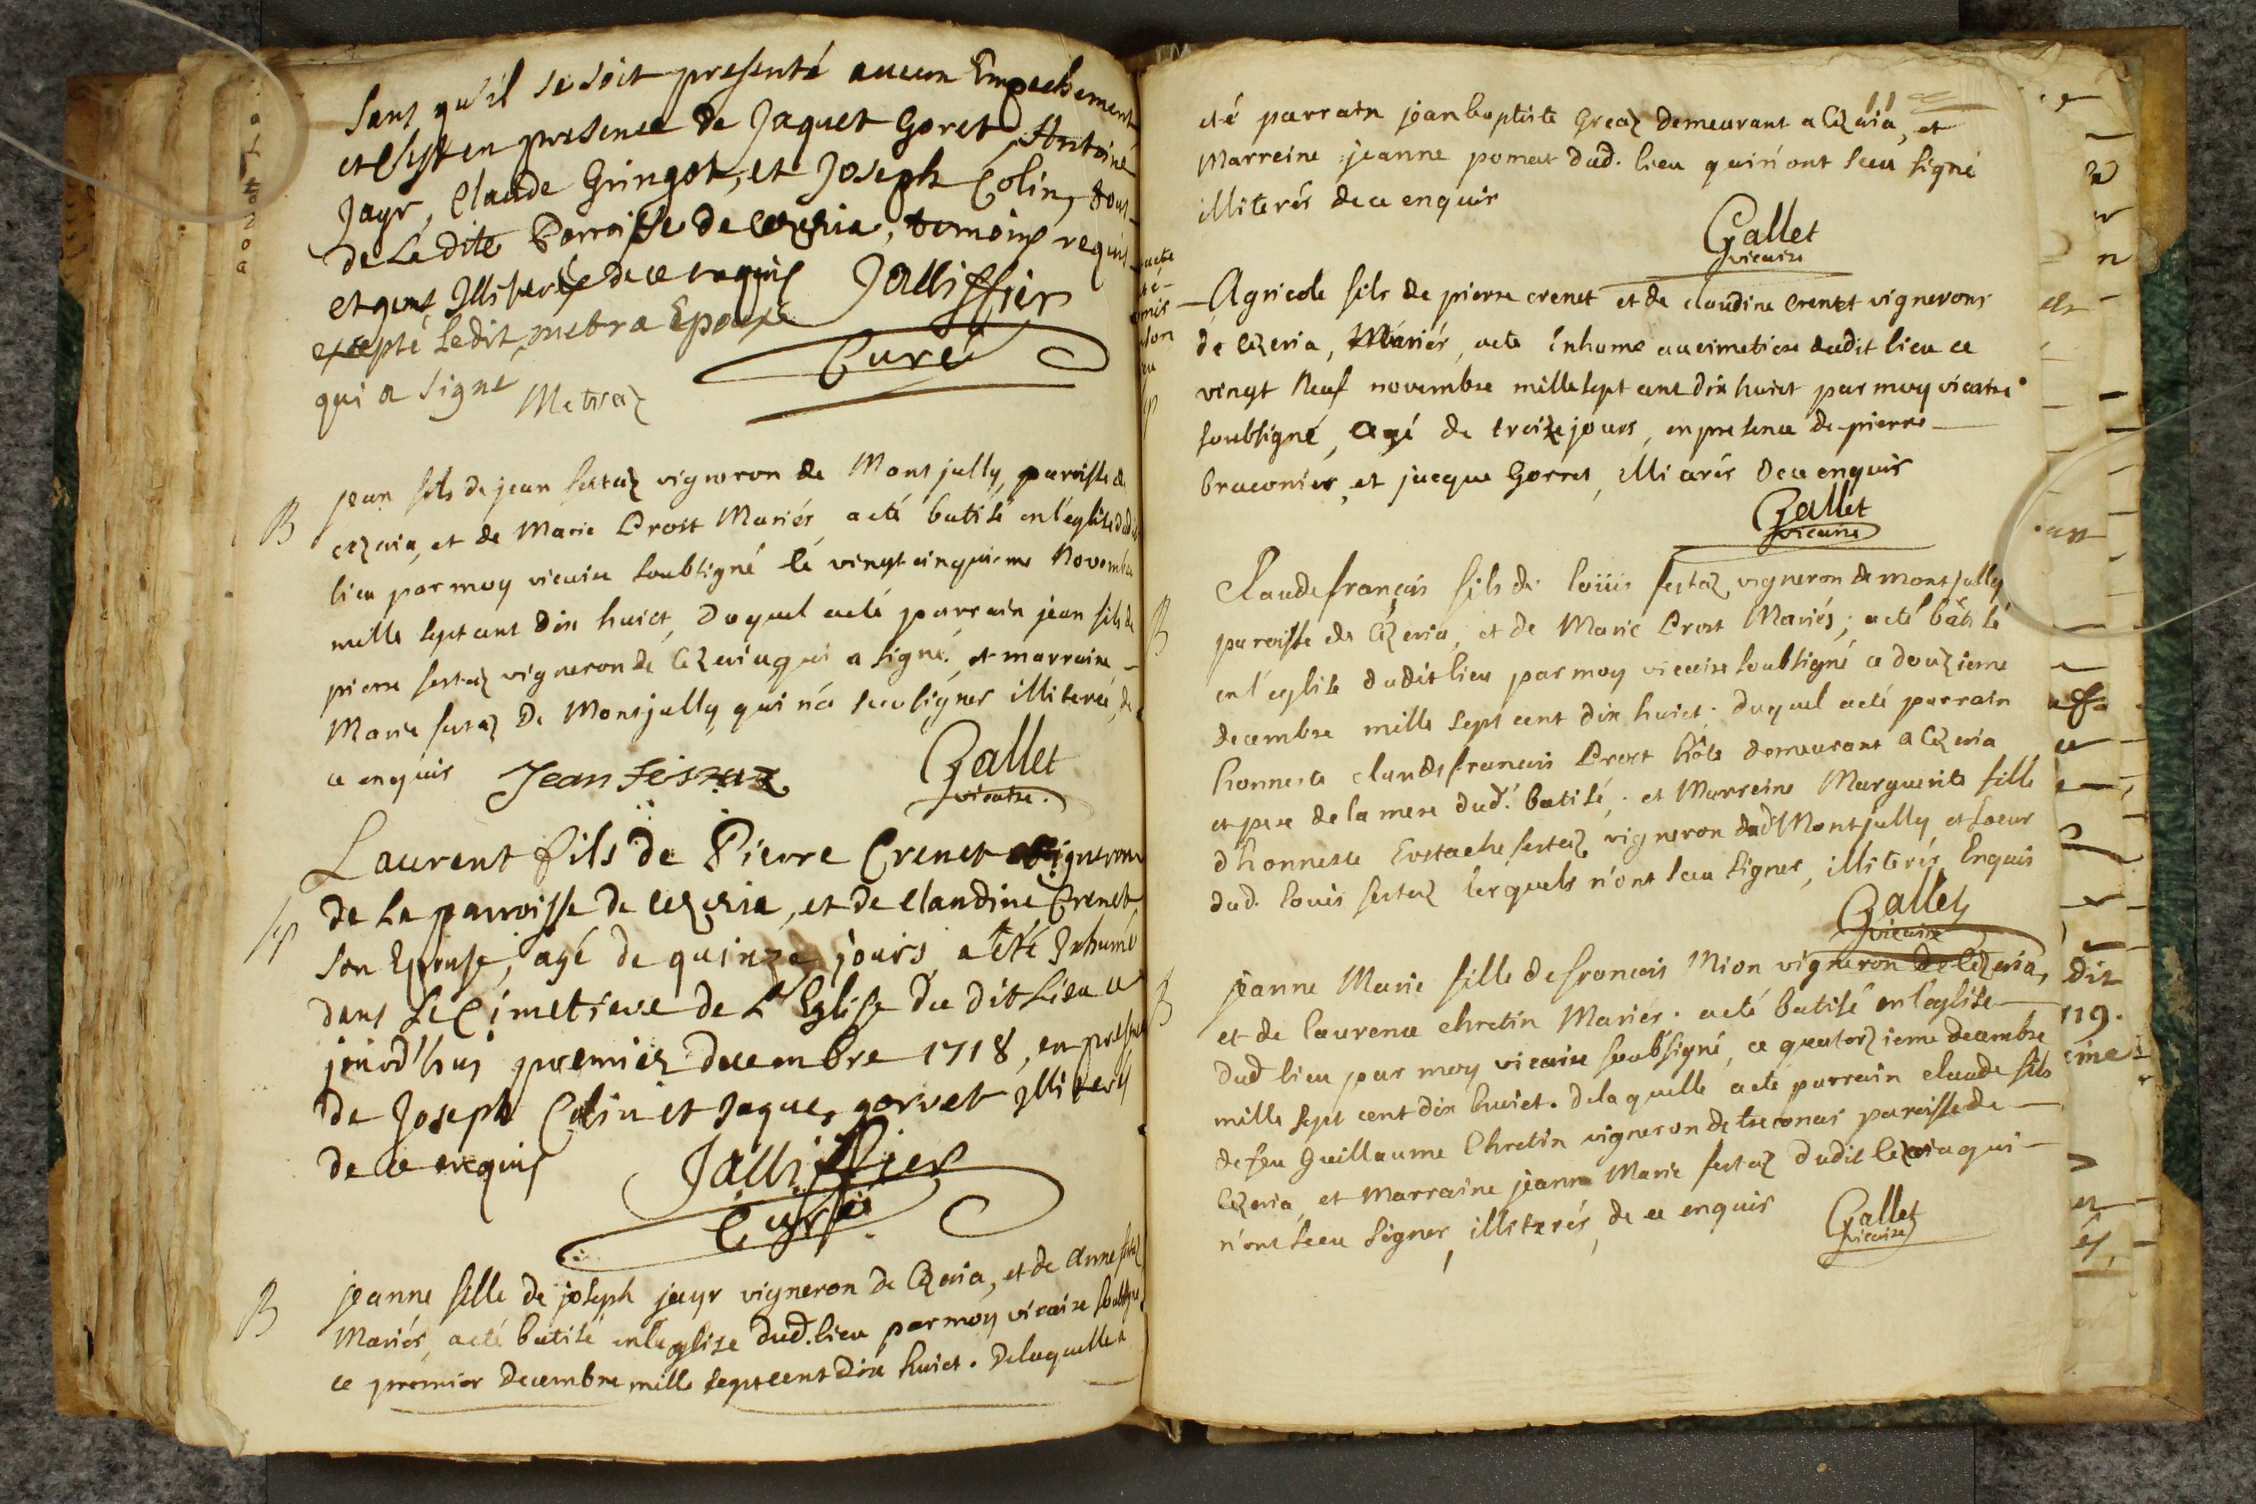 sans qu'il se soit presenté aucun Empechement
et en presence de Jaquet Goret, Antoine
Jayr, Claude Gringot, et Joseph Colin, tous
de Ladite Parroisse de Cezeria, temoins requis
et gens Illiterés de ce enquis Jalliffier
excepté Ledit metra Epoux Curé
qui a signe Metraz
B
jean fils de jean festaz vigneron de Montjully, paroisse de
cezeria, et de Marie Prost Mariés, a eté batisé en l'eglise dudit
lieu par moy vicaire soubsigné le vingt cinquieme Novembre
mille sept cent dix huict, duquel a eté parrain jean fils de
pierre festaz vigneron de Cezeria qui a signé, et marraine
Marie festaz de Montjully qui n'a sceu signer illiterée, de
ce enquis Jean festaz Gallet
vicaire.
Laurent fils de Pierre Crenet vigneron
de La parroisse de cezeria, et de Claudine Crenet
son Epouse, agé de quinze jours a été Inhumé
dans Le Cimetiere de L'Eglise du dit Lieu ce
jourd'huy premier decembre 1718, en presence
de Joseph Colin et Jaques gorret Illiterés
de ce enquis Jalliffier
Curé
B
jeanne fille de joseph jayr vigneron de Cezeria, et de Anne
Mariés, a eté batisé en l'eglise dud. lieu par moy vicaire soubsigné
ce premier decembre mille sept cent dix huict. De laquelle a
eté parrain jean baptiste Greaz demeurant a Cezeria, et
Marreine jeanne pomat dud. lieu qui n'ont sceu signé
illiterés de ce enquis
Gallet
vicaire
Agricole fils de pierre crenet et de claudine crenet vignerons
de Cezeria, Mariés, a eté inhumé au cimetiere dudit lieu ce
vingt Neuf novembre mille sept cent dix huict par moy vicaire
soubsigné, agé de treize jours, en presence de pierre
braconier, et jacque Gorret, illiterés de ce enquis
Gallet
vicaire
B
Claude françois fils de loüis festaz vigneron de montjully
paroisse de Cezeria, et de Marie Prost Mariés; a eté batisé
en l'eglise dudit lieu par moy vicaire soubsigné ce douzieme
decembre mille sept cent dix huict; duquel a eté parrain
honneste claude francois Prost hôte demeurant a Cezeria
et pere de la mere dud. batisé; et Marreine Marguerite fille
d'honneste Eustache festaz vigneron dud Montjully et soeur
dud. louis festaz lesquels n'ont sceu signer, illiterés Enquis
Gallet
vicaire
B
jeanne Marie fille de francois Mion vigneron de Cezeria,
et de laurence chretin Mariés. a eté batisé en l'eglise
dud lieu par moy vicaire soubsigné, ce quatorzieme decembre
mille sept cent dix huict. De laquelle a eté parrain claude fils
de feu Guillaume Chretin vigneron de treconas paroisse de
Cezeria, et Marraine jeanne Marie festaz dudit Cezeria qui
n'ont sceu signer, illiterés, de ce enquis Gallet
vicaire
dit
119.